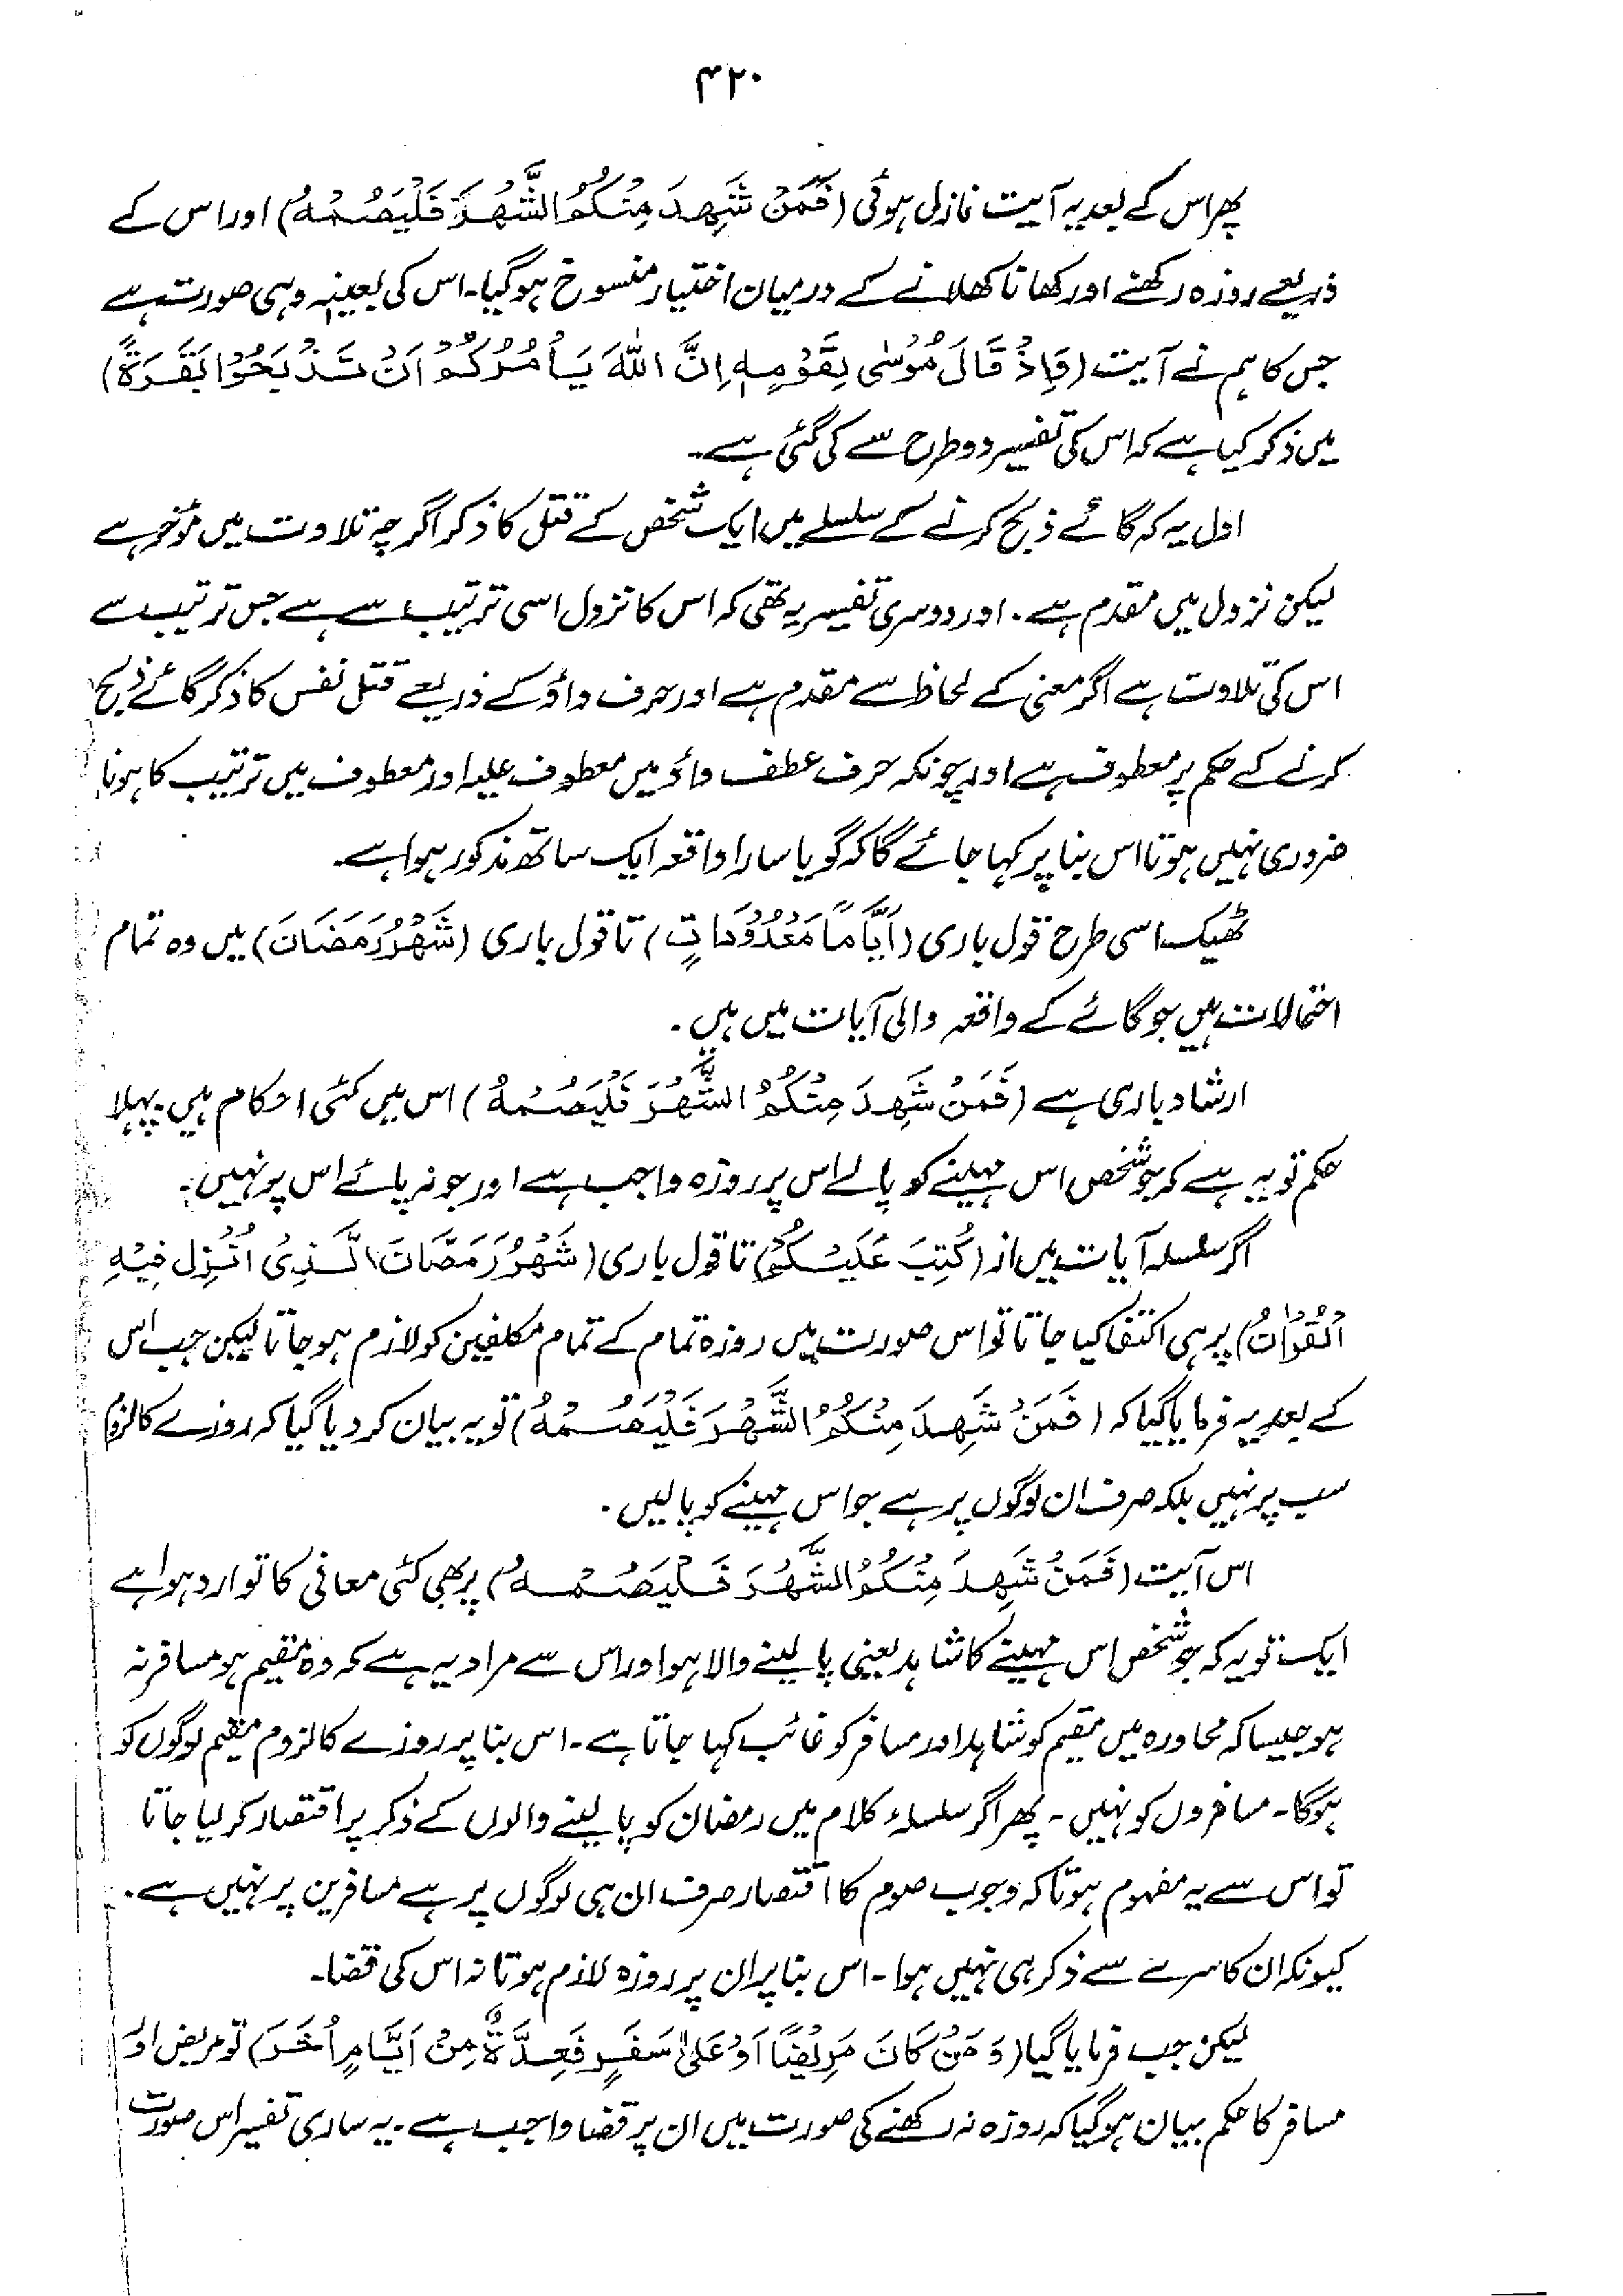 ۴۲۰
پھر اس کے بعد یہ آیت نازل ہوئی (فَمَنْ شَهِدَ مِنْكُمُ الشَّهْرَ فَلْيَصُمْهُ) اور اس کے
ذریعے روزہ رکھنے اور کھانا کھلانے کے درمیان اختیار منسوخ ہوگیا۔ اس کی بعینہٖ وہی صورت ہے
جس کا ہم نے آیت (وَاِذْ قَالَ مُوْسٰی لِقَوْمِهٖ اِنَّ اللّٰهَ يَأْمُرُكُمْ اَنْ تَذْبَحُوْا بَقَرَةً)
میں ذکر کیا ہے کہ اس کی تفسیر دو طرح سے کی گئی ہے۔
اول یہ کہ گائے ذبح کرنے کے سلسلے میں ایک شخص کے قتل کا ذکر اگرچہ تلاوت میں مؤخر ہے
لیکن نزول میں مقدم ہے۔ اور دوسری تفسیر یہ تھی کہ اس کا نزول اسی ترتیب سے ہے جس ترتیب سے
اس کی تلاوت ہے اگر معنی کے لحاظ سے مقدم ہے اور حرف واؤ کے ذریعے قتل نفس کا ذکر گائے ذبح
کرنے کے حکم پر معطوف ہے اور چونکہ حرف عطف واؤ میں معطوف علیہ اور معطوف میں ترتیب کا ہونا
ضروری نہیں ہوتا اس بنا پر کہا جائے گا کہ گویا سارا واقعہ ایک ساتھ مذکور ہوا ہے۔
ٹھیک اسی طرح قول باری (اَيَّامًا مَعْدُوْدَاتٍ) تا قول باری (شَهْرُ رَمَضَانَ) میں وہ تمام
احتمالات ہیں جو گائے کے واقعہ والی آیات میں ہیں۔
ارشاد باری ہے (فَمَنْ شَهِدَ مِنْكُمُ الشَّهْرَ فَلْيَصُمْهُ) اس میں کئی احکام ہیں۔ پہلا
حکم تو یہ ہے کہ جو شخص اس مہینے کو پالے اس پر روزہ واجب ہے اور جو نہ پائے اس پر نہیں۔
اگر سلسلہ آیات میں از (كُتِبَ عَلَيْكُمْ) تا قول باری (شَهْرُ رَمَضَانَ الَّذِیْ اُنْزِلَ فِيْهِ
الْقُرْاٰنُ) پر ہی اکتفا کیا جاتا تو اس صورت میں روزہ تمام کے تمام مکلفین کو لازم ہو جاتا لیکن جب اس
کے بعد یہ فرمایا گیا کہ (فَمَنْ شَهِدَ مِنْكُمُ الشَّهْرَ فَلْيَصُمْهُ) تو یہ بیان کر دیا گیا کہ روزے کا لزوم
سب پر نہیں بلکہ صرف ان لوگوں پر ہے جو اس مہینے کو پالیں۔
اس آیت (فَمَنْ شَهِدَ مِنْكُمُ الشَّهْرَ فَلْيَصُمْهُ) پر بھی کئی معانی کا توارد ہوا ہے
ایک تو یہ کہ جو شخص اس مہینے کا شاہد یعنی پالینے والا ہو اور اس سے مراد یہ ہے کہ وہ مقیم ہو مسافر نہ
ہو جیسا کہ محاورہ میں مقیم کو شاہد اور مسافر کو غائب کہا جاتا ہے۔ اس بنا پر روزے کا لزوم مقیم لوگوں کو
ہوگا۔ مسافروں کو نہیں۔ پھر اگر سلسلۂ کلام میں رمضان کو پالینے والوں کے ذکر پر اقتصار کر لیا جاتا
تو اس سے یہ مفہوم ہوتا کہ وجوب صوم کا اقتصار صرف ان ہی لوگوں پر ہے مسافرین پر نہیں ہے۔
کیونکہ ان کا سرے سے ذکر ہی نہیں ہوا۔ اس بنا پر ان پر روزہ لازم ہوتا نہ اس کی قضا۔
لیکن جب فرمایا گیا (وَمَنْ كَانَ مَرِيْضًا اَوْ عَلٰی سَفَرٍ فَعِدَّةٌ مِنْ اَيَّامٍ اُخَرَ) تو مریض اور
مسافر کا حکم بیان ہوگیا کہ روزہ نہ رکھنے کی صورت میں ان پر قضا واجب ہے۔ یہ ساری تفسیر اس صورت